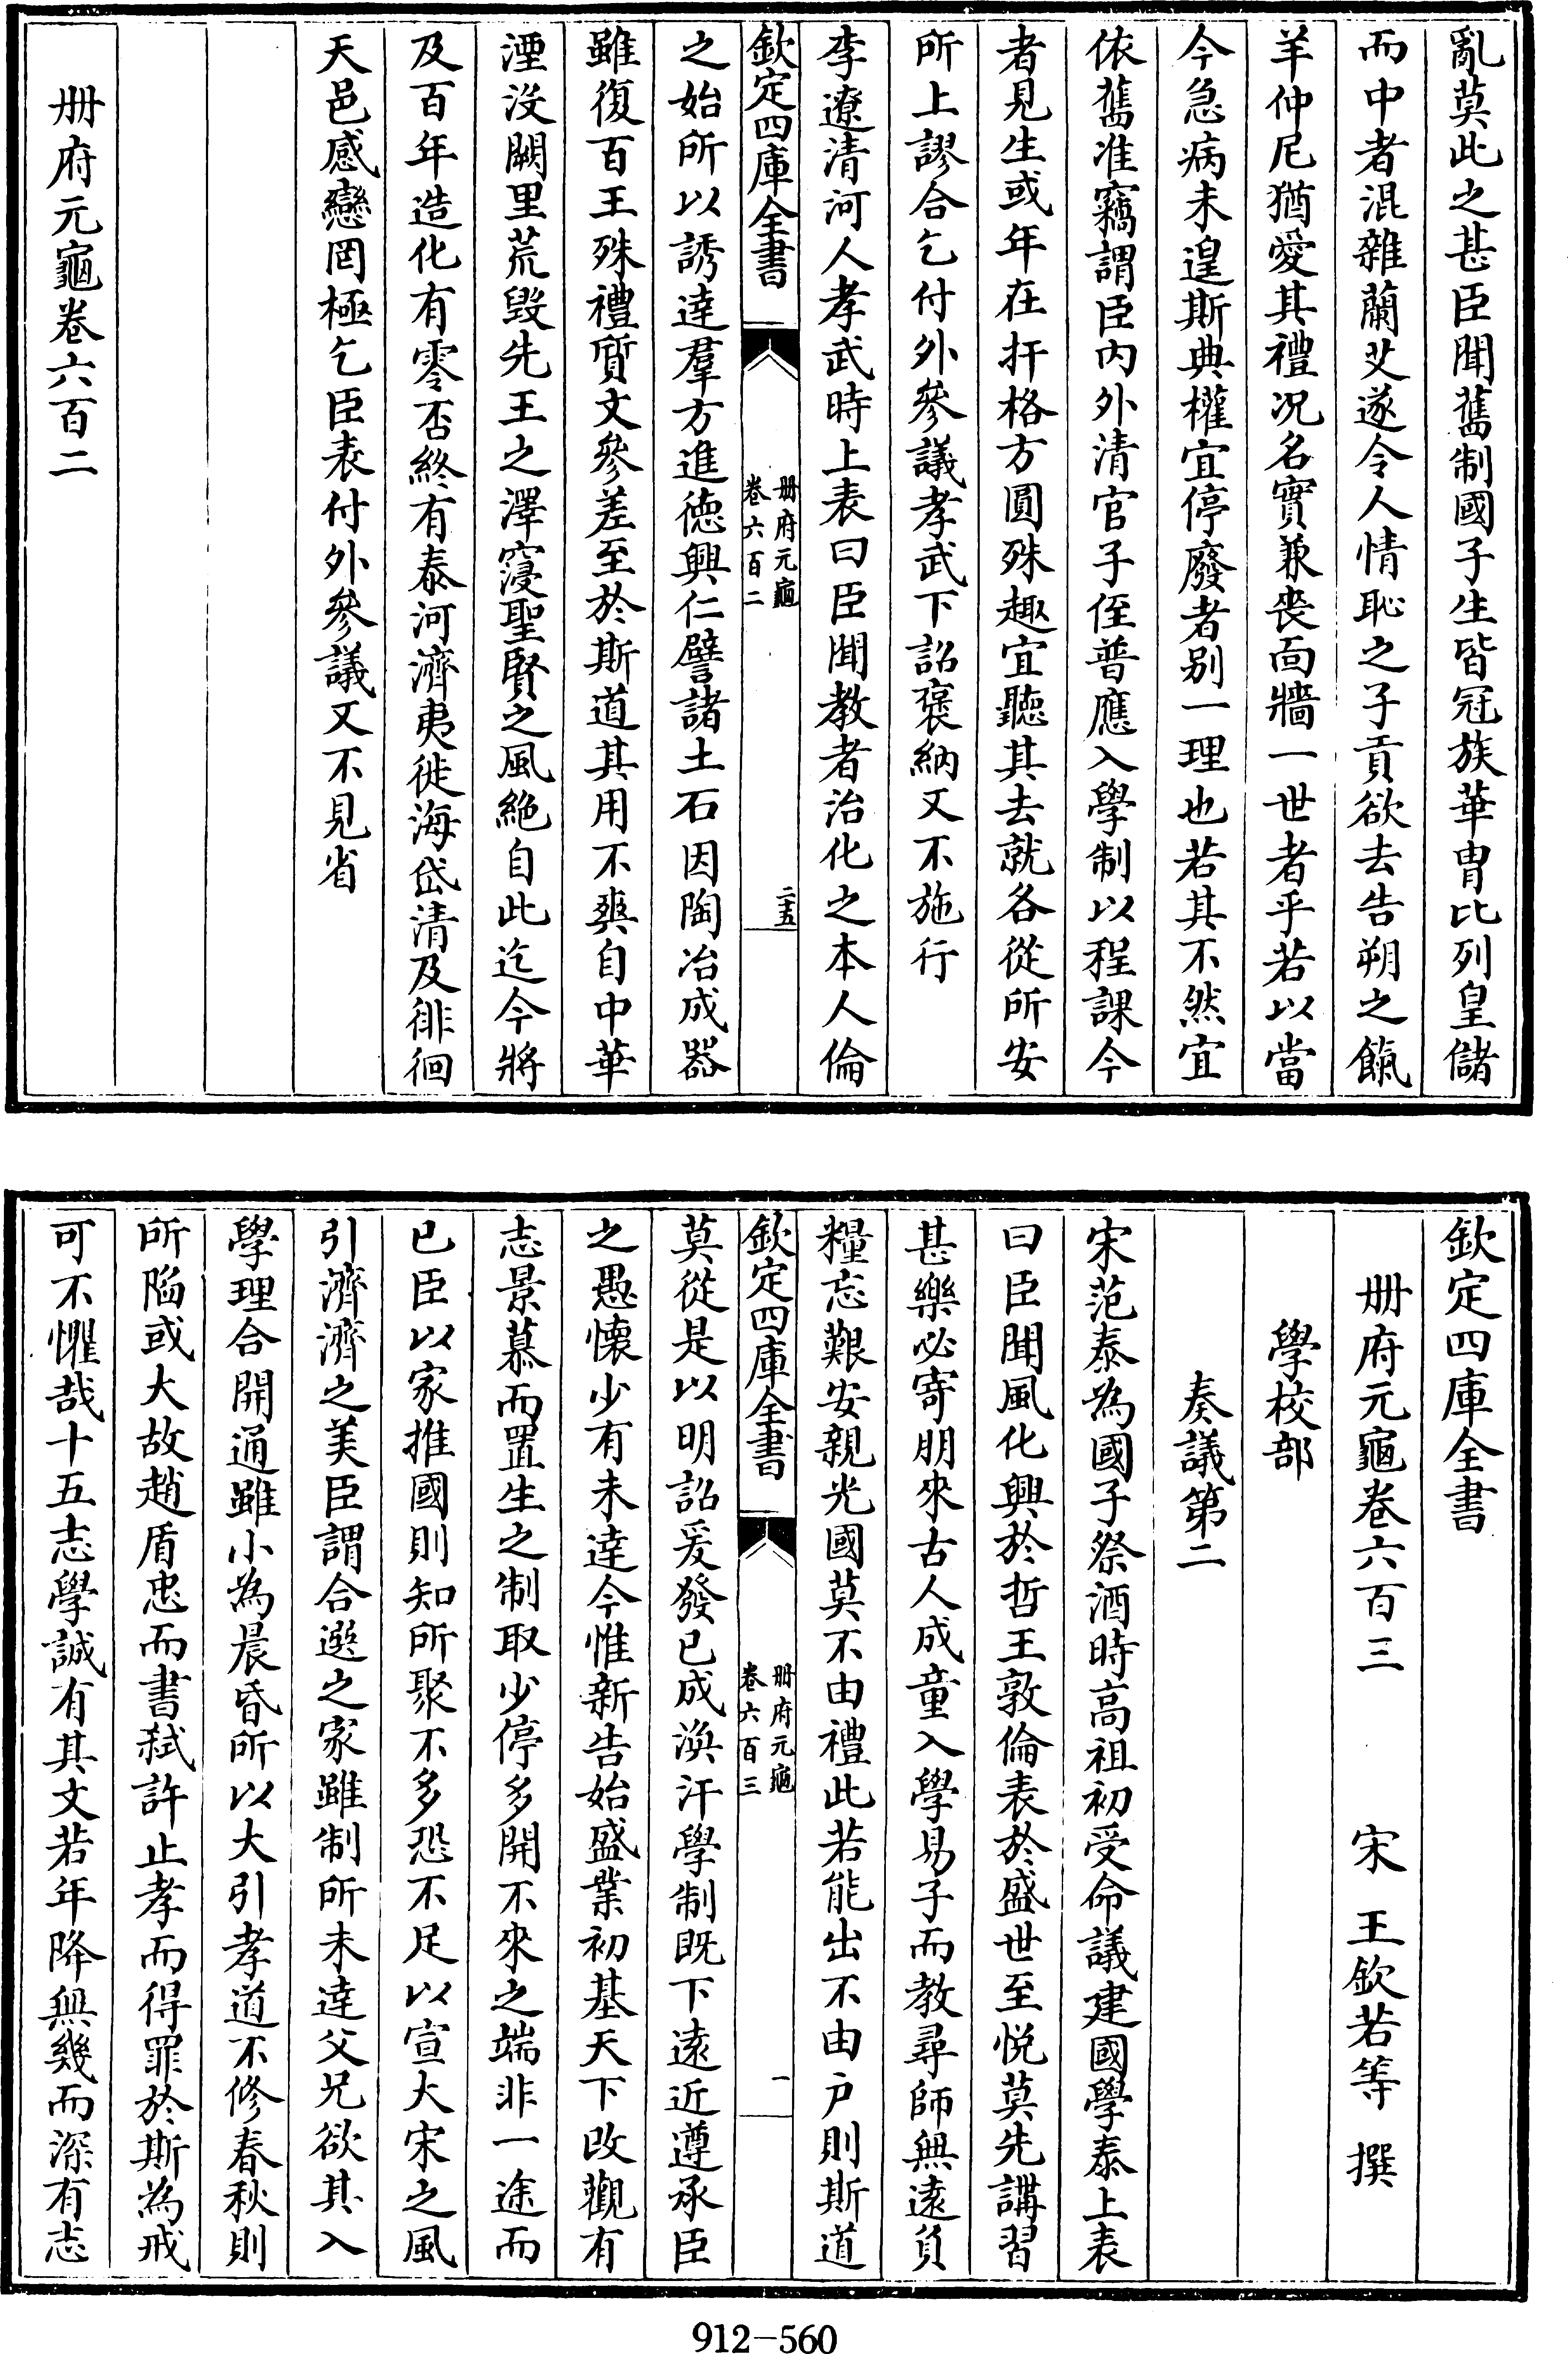 亂莫此之甚臣聞舊制國子生皆冠族華胄比列皇儲
而中者混雜蘭艾遂令人情恥之子貢欲去告朔之餼
羊仲尼猶愛其禮况名實兼喪面牆一世者乎若以當
今急病未遑斯典權宜停廢者别一理也若其不然宜
依舊准竊謂臣内外清官子侄普應入學制以程課今
者見生或年在扞格方圓殊趣宜聽其去就各從所安
所上謬合乞付外參議孝武下詔褒納又不施行
李遼清河人孝武時上表曰臣聞教者治化之本人倫
欽定四庫全書
册府元龜
卷六百二
二五
之始所以誘達羣方進徳興仁譬諸土石因陶冶成器
雖復百王殊禮質文參差至於斯道其用不爽自中華
湮没闕里荒毁先王之澤寖聖賢之風絶自此迄今將
及百年造化有零否終有泰河濟夷徙海岱清及徘徊
天邑感戀罔極乞臣表付外參議又不見省
册府元龜卷六百二
欽定四庫全書
册府元龜卷六百三 宋 王欽若等 撰
學校部
奏議第二
宋范泰為國子祭酒時高祖初受命議建國學泰上表
曰臣聞風化興於哲王敦倫表於盛世至悦莫先講習
甚樂必寄朋來古人成童入學易子而教尋師無遠負
糧忘艱安親光國莫不由禮此若能出不由户則斯道
欽定四庫全書
册府元龜
卷六百三
一
莫從是以明詔爰發已成渙汗學制既下遠近遵承臣
之愚懷少有未達今惟新告始盛業初基天下改觀有
志景慕而置生之制取少停多開不來之端非一途而
已臣以家推國則知所聚不多恐不足以宣大宋之風
引濟濟之美臣謂合選之家雖制所未達父兄欲其入
學理合開通雖小為晨昏所以大引孝道不修春秋則
所陷或大故趙盾忠而書弑許止孝而得罪於斯為戒
可不懼哉十五志學誠有其文若年降無幾而深有志
912-560